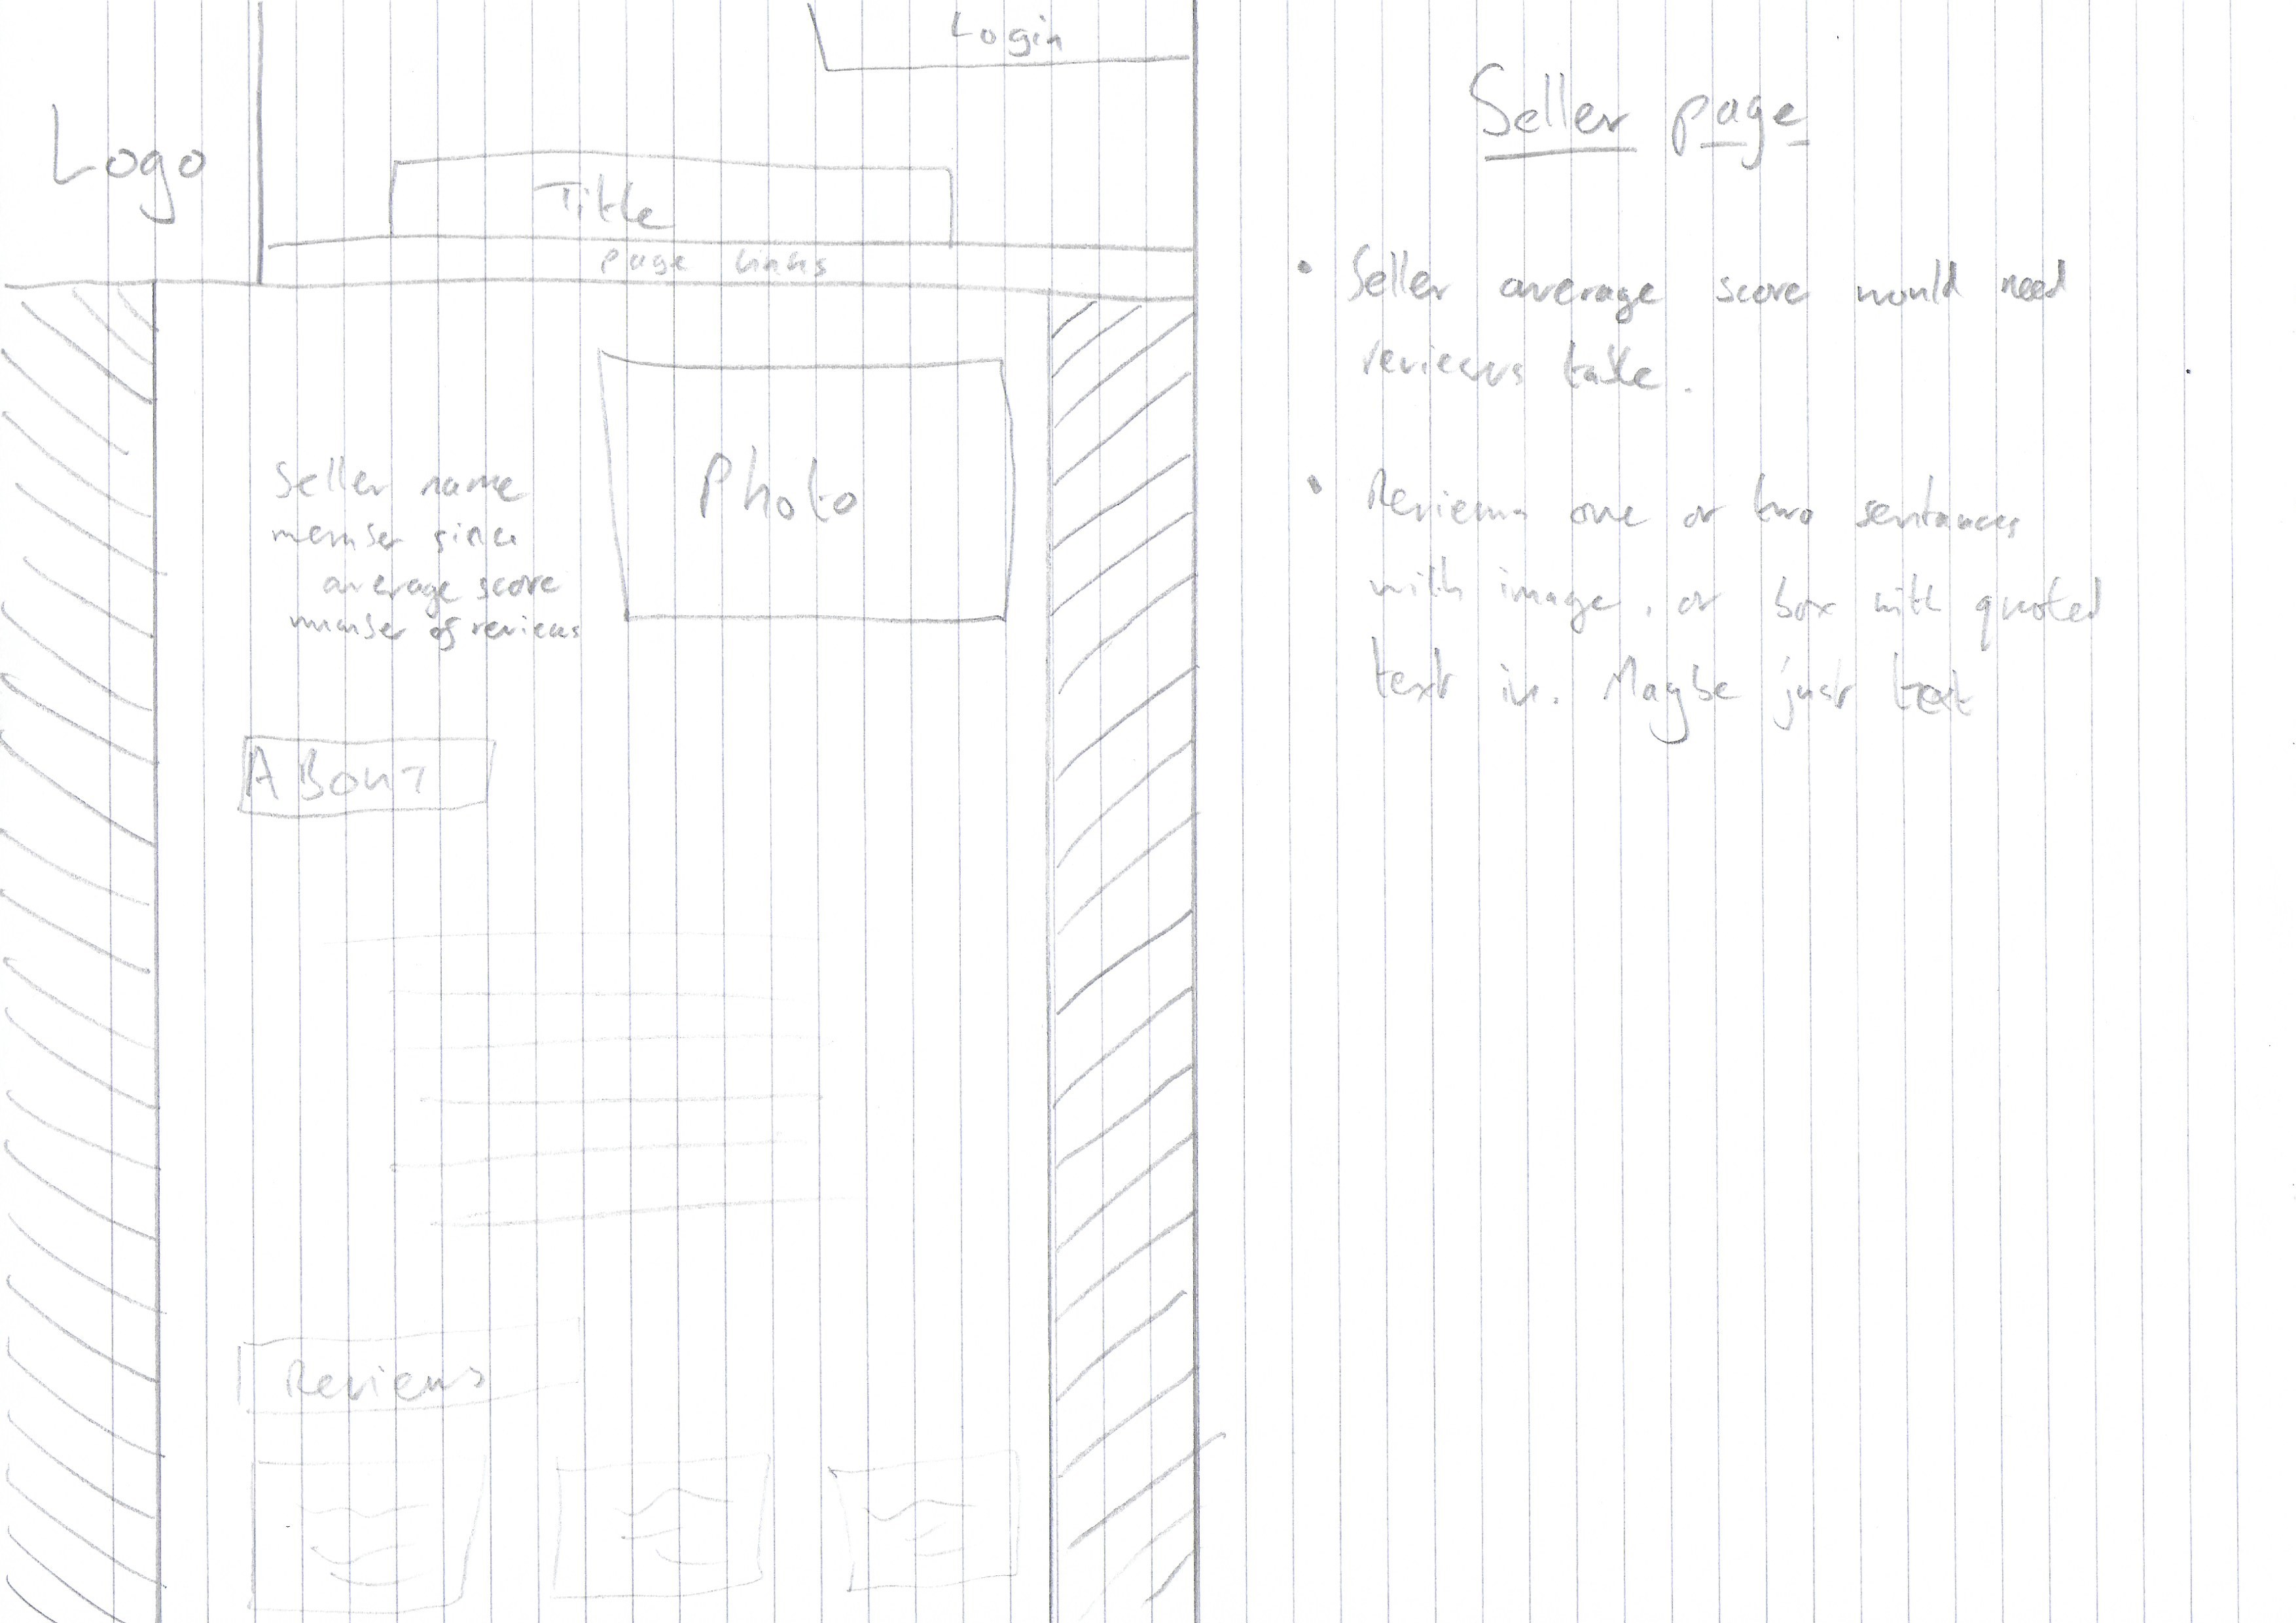 Login
Logo
Title
page links
Photo
Seller name
member since
average score
number of reviews
ABOUT
Reviews
Seller page
• Seller average score would need
reviews table.
• Reviews one or two sentances
with image, or box with quoted
text in. Maybe just text